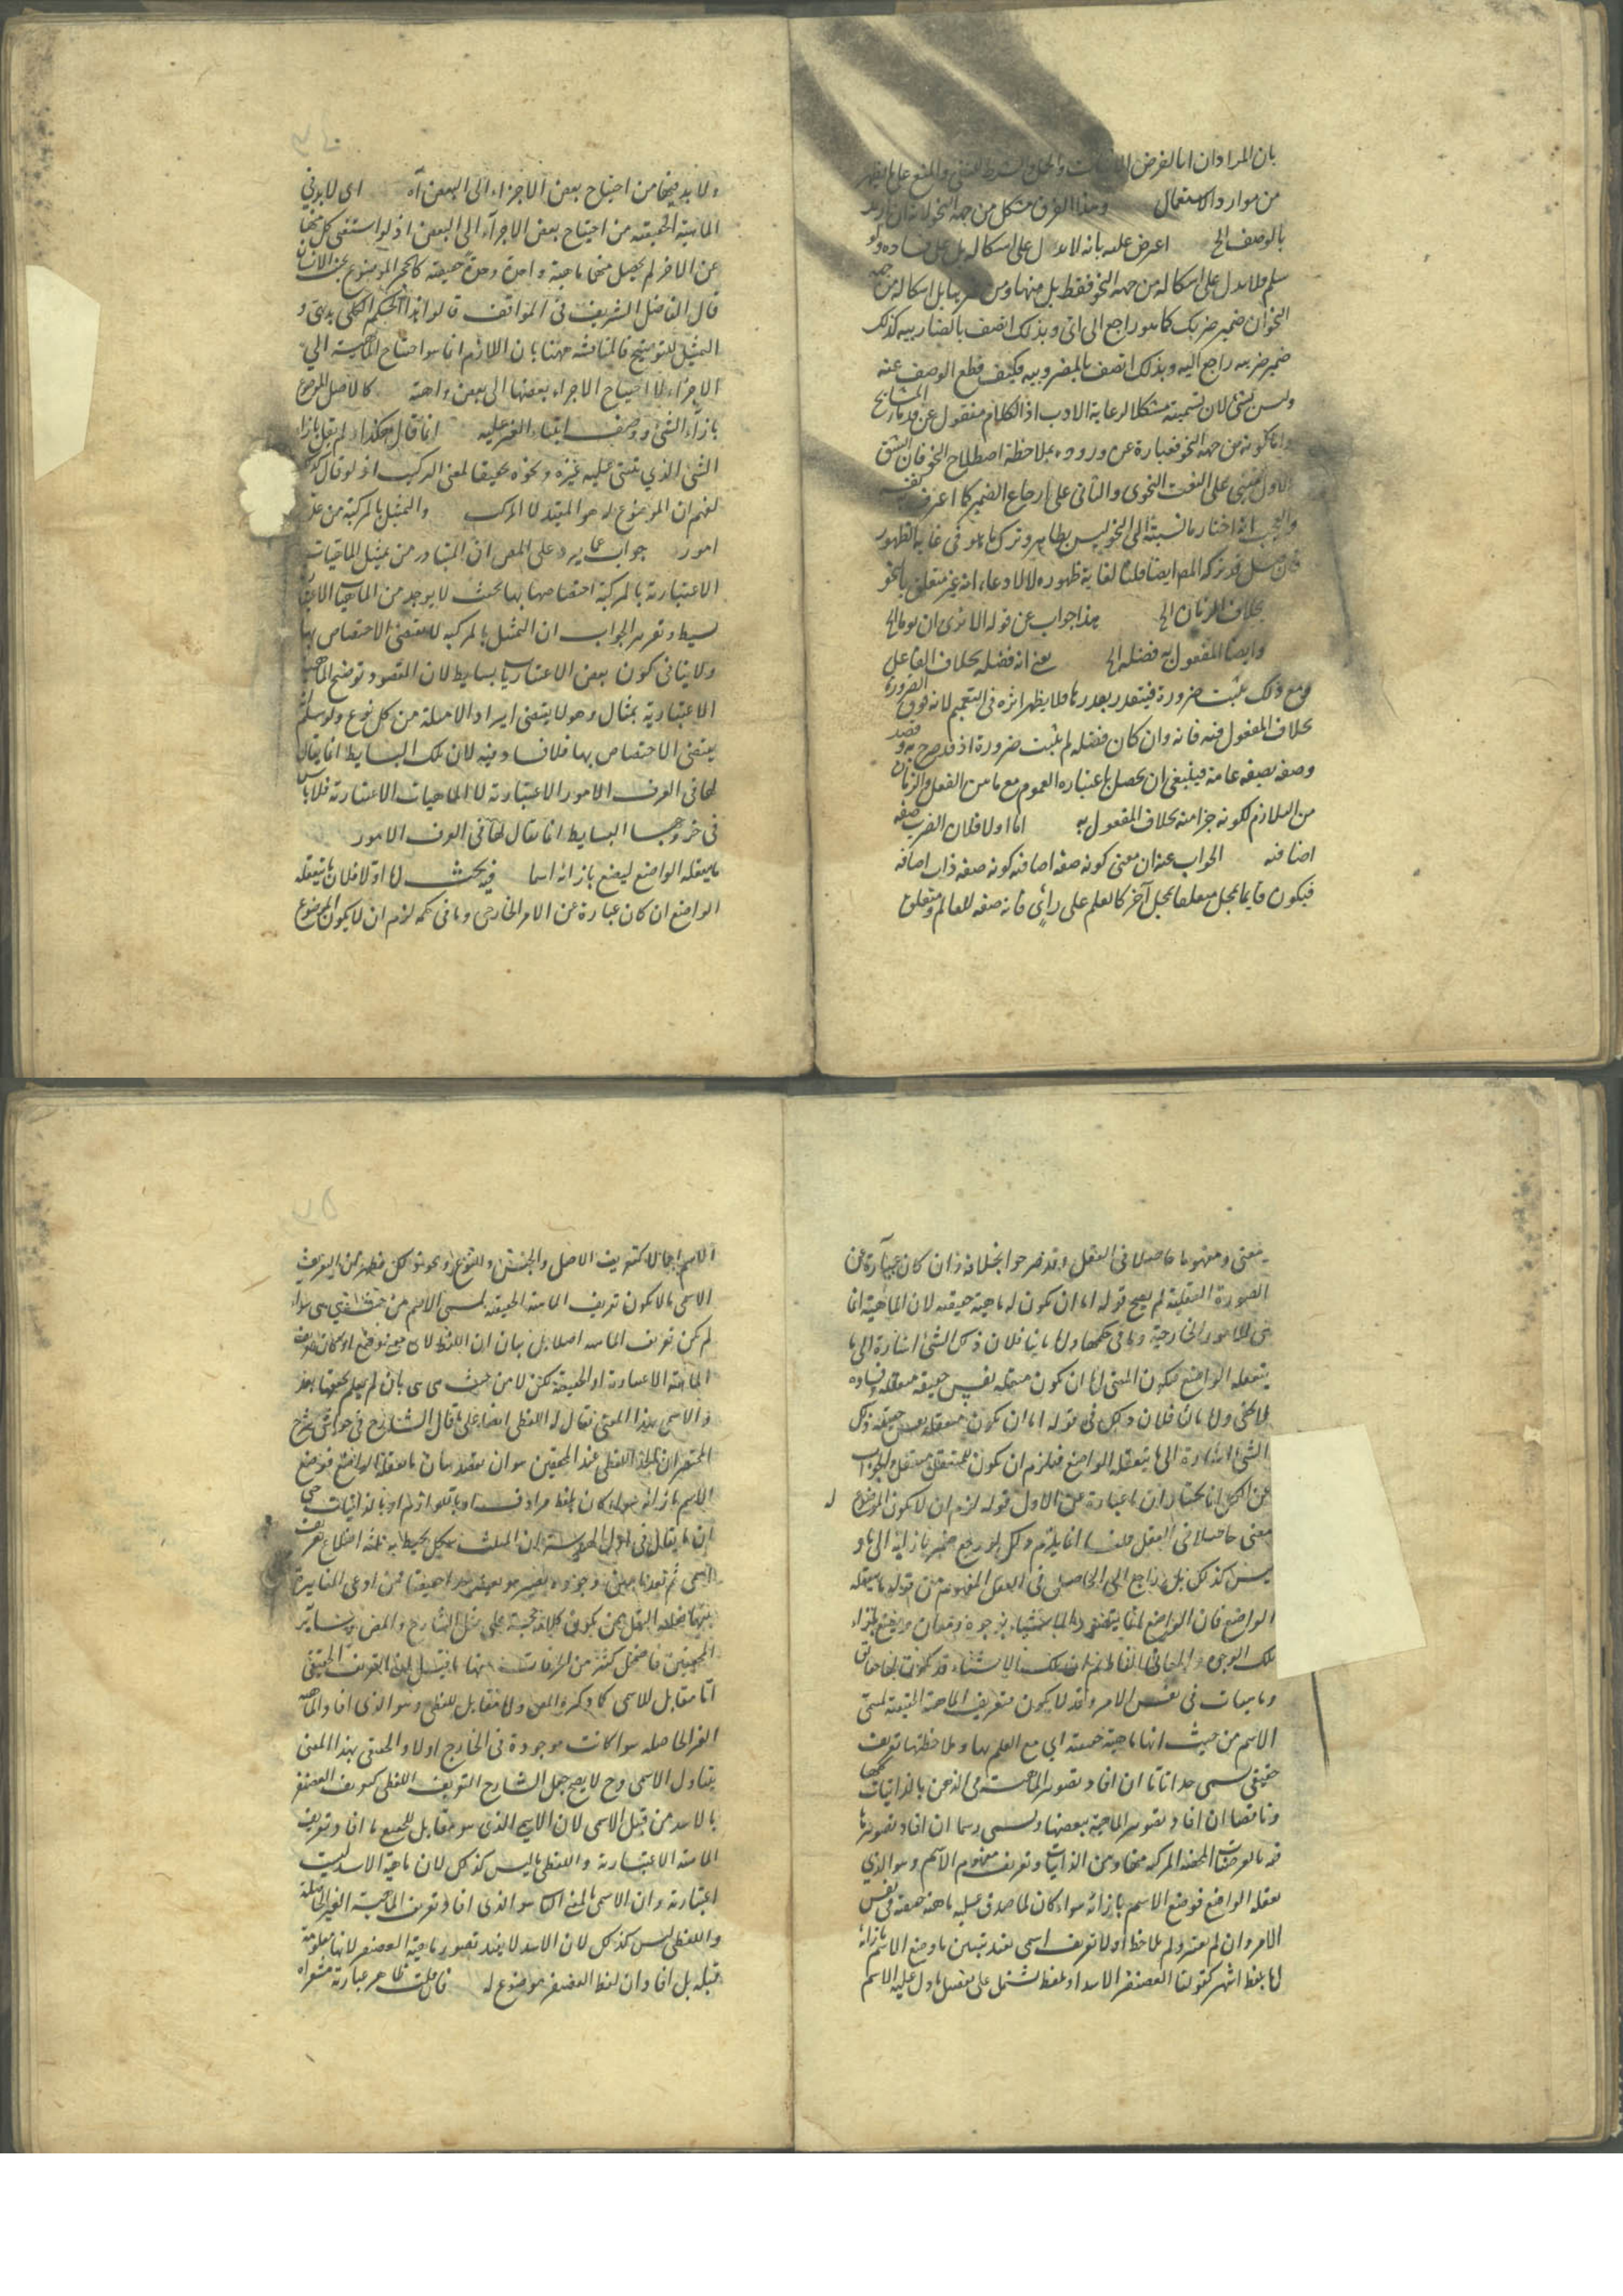 بان المراد ان
من موارد الاستعمال وهذا الفرق مشكل من جهة النحو لانه ان اريد
بالوصف الخ اعترض عليه بانه لا يدل على اشكاله بل على فساده ولو
سلم فلا يدل على اشكاله من جهة النحو فقط بل منها ومن بل اشكاله من جهة
النحو ان ضمير ضربك كما هو راجع الى اى وبذلك اتصف بالضاربيه كذلك
ضمير ضربته راجع اليه وبذلك اتصف بالمضروبيه فكيف قطع الوصف عنه
وليس بشئ لان تسميته مشكلا لرعاية الادب اذ الكلام منقول عن المشايخ
واما كونه من جهة النحو فعبارة عن وروده بملاحظة اصطلاح النحو فان الشق
الاول مبنى على النعت النحوى والثانى على ارجاع الضمير كما اعترف
انه اختار ما نسبته الى النحو ليس بظاهر وترك ما هو فى غاية الظهور
قد تركه المص ايضا قلنا لغاية ظهوره لا لادعاء انه غير متعلق بالنحو
بخلاف الزمان الخ هذا جواب عن قوله الا ترى ان يوما الخ
وايضا المفعول به فضلة الخ يعنى انه فضلة بخلاف الفاعل
ومع ذلك يثبت ضرورة فيتقدر بقدرها فلا يظهر اثره فى التعميم لانه فوق الضرورة
بخلاف المفعول فيه فانه وان كان فضلة لم يثبت ضرورة اذ قد صرح به و قصد
وصفه بصفة عامة فينبغى ان يحصل باعتباره العموم مع ما بين الفعل والزمان
من التلازم لكونه جزأ منه بخلاف المفعول به اما اولا فلان الضرب صفة
اضافية الجواب عنه ان معنى كونه صفة اضافية كونه صفة ذات اضافة
فيكون قائما بمحل متعلقا بمحل آخر كالعلم على رأى فانه صفة للعالم ومتعلق
ولا بد فيها من احتياج بعض الاجزاء الى البعض آه اى لا بد فى
الماهية الحقيقية من احتياج بعض الاجزاء الى البعض اذ لو استغنى كل منها
عن الاخر لم يحصل منها ماهية واحدة وحدة حقيقة كالحجر الموضوع بجنب الانسان
قال الفاضل الشريف فى المواقف قالوا هذا الحكم الكلى بديهى و
التمثيل للتوضيح فالمناقشة ههنا بان اللازم انما هو احتياج الماهية الى
الاجزاء لا احتياج الاجراء بعضها الى بعض واهية كالاصل الموضوع
بازاء الشئ ووصف ابتناء الغير عليه انما قال هكذا ولم يقل بازاء
الشئ الذي يبتنى عليه غيره ونحوه تحقيقا لمعنى التركيب اذ لو قال كذلك
لفهم ان الموضوع له هو المقيد لا المركب والتمثيل بالمركبة من عدة
امور جواب عما يرد على المص ان المتبادر من تمثيل الماهيات
الاعتبارية بالمركبة اختصاصها بها بحيث لا يوجد من الماهيات الاعتبارية
بسيط وتقرير الجواب ان التمثيل بالمركبة لا يقتضى الاختصاص بها
ولا ينافى كون بعض الاعتباريات بسايط لان المقصود توضيح الماهية
الاعتبارية بمثال وهو لا يقتضى ايراد الامثلة من كل نوع ولو سلم
يقتضى الاختصاص بها فلا فساد فيه لان تلك البسايط انما يقال
لها فى العرف الامور الاعتبارية لا الماهيات الاعتبارية فلا بأس
فى خروجها البسايط انما يقال لها فى العرف الامور
ما يعقله الواضع ليضع بازائه اسما فيه بحث اما اولا فلان ما يتعقله
الواضع ان كان عبارة عن الامر الخارجى وما فى حكمه لزم ان لا يكون الموضوع
معنى ومفهوما حاصلا فى العقل وقد صرحوا بخلافه وان كان عبارة عن
الصورة العقلية لم يصح قوله اما ان يكون له ماهية حقيقية لان الماهية انما
هى للامور الخارجية وما فى حكمها واما ثانيا فلان ذلك الشئ اشارة الى ما
يتعقله الواضع فيكون المعنى اما ان يكون متعقله نفس حقيقة متعقله وفساده
لا يخفى واما ثالثا فلان ذلك فى قوله اما ان يكون متعقله نفس حقيقة ذلك
الشئ اشارة الى ما يتعقله الواضع فيلزم ان يكون للمتعقل متعقل والجواب
عن الكل انا نختار ان ما عبارة عن الاول قوله لزم ان لا يكون الموضوع له
معنى حاصلا فى العقل قلنا انما يلزم ذلك لو رجع ضمير بازائه الى ما و
ليس كذلك بل راجع الى الحاصل فى العقل المفهوم من قوله ما يتعقله
الواضع فان الواضع لما يتصور الاشياء بوجوه ومعان ويضع بازاء
تلك الوجوه والمعانى الفاظا ثم ان تلك الاشياء قد يكون لها حقائق
وماهيات فى نفس الامر وقد لا يكون فتعريف الماهية الحقيقية لمسمى
الاسم من حيث انها ماهية حقيقية اى مع العلم بها وملاحظتها تعريف
حقيقى يسمى حدا تاما ان افاد تصور الماهية فى الذهن بالذاتيات كلها
وناقصا ان افاد تصور الماهية ببعضها ويسمى رسما ان افاد تصورها
فيه بالعرضيات المحضة او المركبة منها ومن الذاتيات وتعريف مفهوم الاسم وهو الذي
تعقله الواضع فوضع الاسم بازائه سواء كان لما صدق عليه ماهية حقيقية فى نفس
الامر وان لم يعتبر ولم يلاحظ او لا تعريف اسمى يفيد تبيين ما وضع الاسم بازائه
اما بلفظ اشهر كقولنا الغضنفر الاسد او بلفظ يشتمل على تفصيل ما دل عليه الاسم
الاسم اجمالا كتعريف الاصل والجنس والنوع ونحوها
الاسمى ما لا يكون تعريف الماهية الحقيقية لمسمى الاسم من حيث هى هى سواء
لم يكن تعريف الماهية اصلا بل بيان ان اللفظ لاى معنى وضع او كان تعريف
الماهية الاعتبارية او الحقيقية لكن لا من حيث هى هى بان لم يعلم تحققها بعد
والاسمى بهذا المعنى يقال له اللفظى ايضا على ما قال الشارح فى حواشى شرح
المختصر ان اللفظى عند المحققين هو ان يقصد بيان ما تعقله الواضع فوضع
الاسم بازائه سواء كان بلفظ مرادف او باللوازم او بالذاتيات حتى
ان ما يقال فى اول الهندسة ان المثلث شكل يحيط به ثلثة اضلاع تعريف
اسمى ثم بعد ما يبين وجوده يصير هو بعينه حدا حقيقيا فمن ادعى المغايرة
المحققين فاضمحل كثير من
اما مقابل للاسمى كما ذكره المص واما مقابل للفظى وهو الذى افاد الماهية
الغير الحاصلة سواء كانت موجودة فى الخارج او لا والحقيقى بهذا المعنى
يتناول الاسمى وح لا يصح جعل الشارح التعريف اللفظى كتعريف الغضنفر
بالاسد من قبيل الاسمى لان الاسمى الذى هو مقابل للجميع ما افاد تعريف
الماهية الاعتبارية واللفظى ليس كذلك لان ماهية الاسد ليست
اعتبارية وان الاسمى بالمعنى الثانى هو الذى افاد تعريف الماهية الغير الحاصلة
واللفظى ليس كذلك لان الاسد لا يفيد تصور ماهية الغضنفر لانها معلومة
قبله بل افاد ان لفظ الغضنفر موضوع له فان قلت ظاهر عبارته مشعر